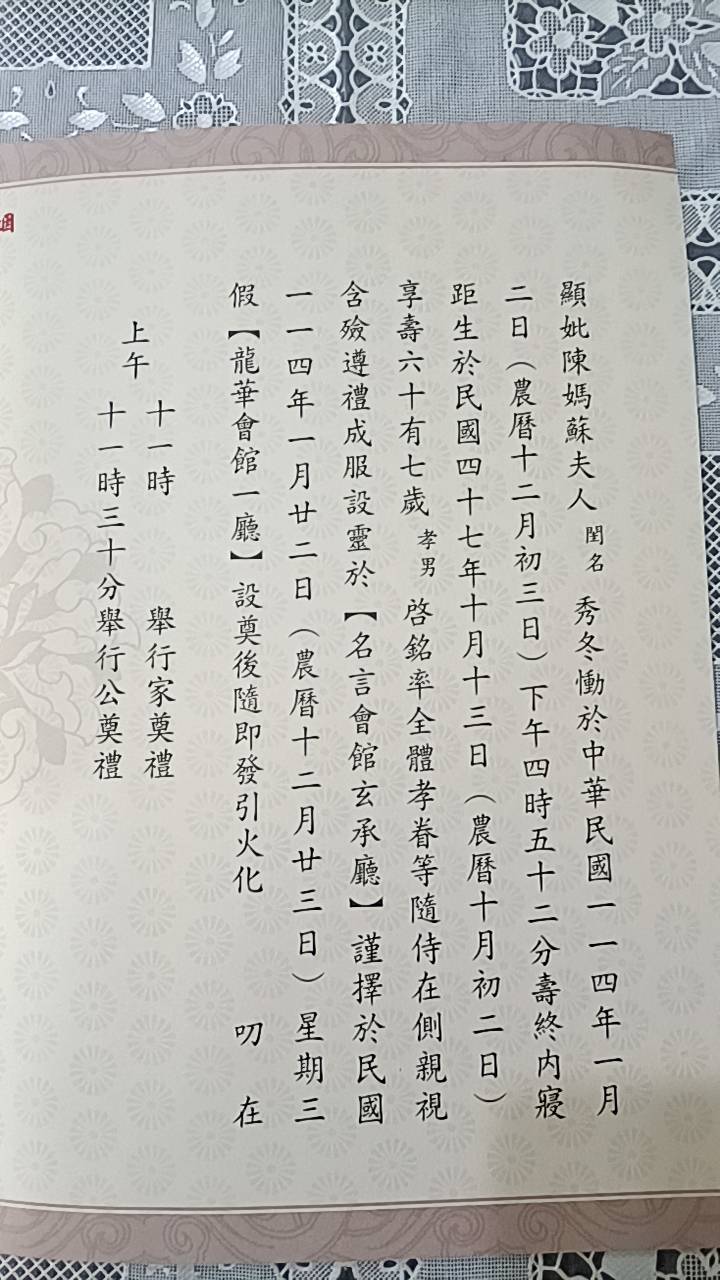 顯妣陳媽蘇夫人 閨名 秀冬慟於中華民國一一四年一月
二日（農曆十二月初三日）下午四時五十二分壽終內寢
距生於民國四十七年十月十三日（農曆十月初二日）
享壽六十有七歲 孝男 啓銘率全體孝眷等隨侍在側親視
含殮遵禮成服設靈於【名言會館玄承廳】謹擇於民國
一一四年一月廿二日（農曆十二月廿三日）星期三
假【龍華會館一廳】設奠後隨即發引火化 叨 在
上午
十一時 舉行家奠禮
十一時三十分舉行公奠禮